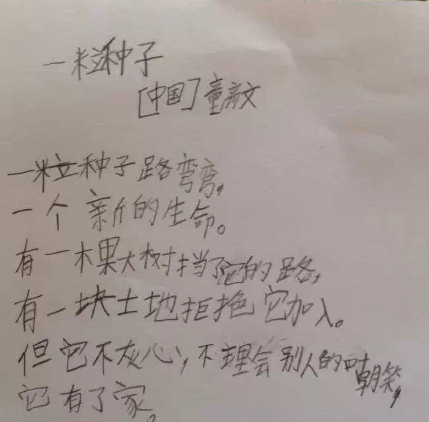 一粒种子
[中国]童高文
一粒种子路弯弯,
一个新的生命。
有一棵大树挡了它的路,
有一块土地拒绝它加入。
但它不灰心,不理会别人的嘲笑,
它有了家。